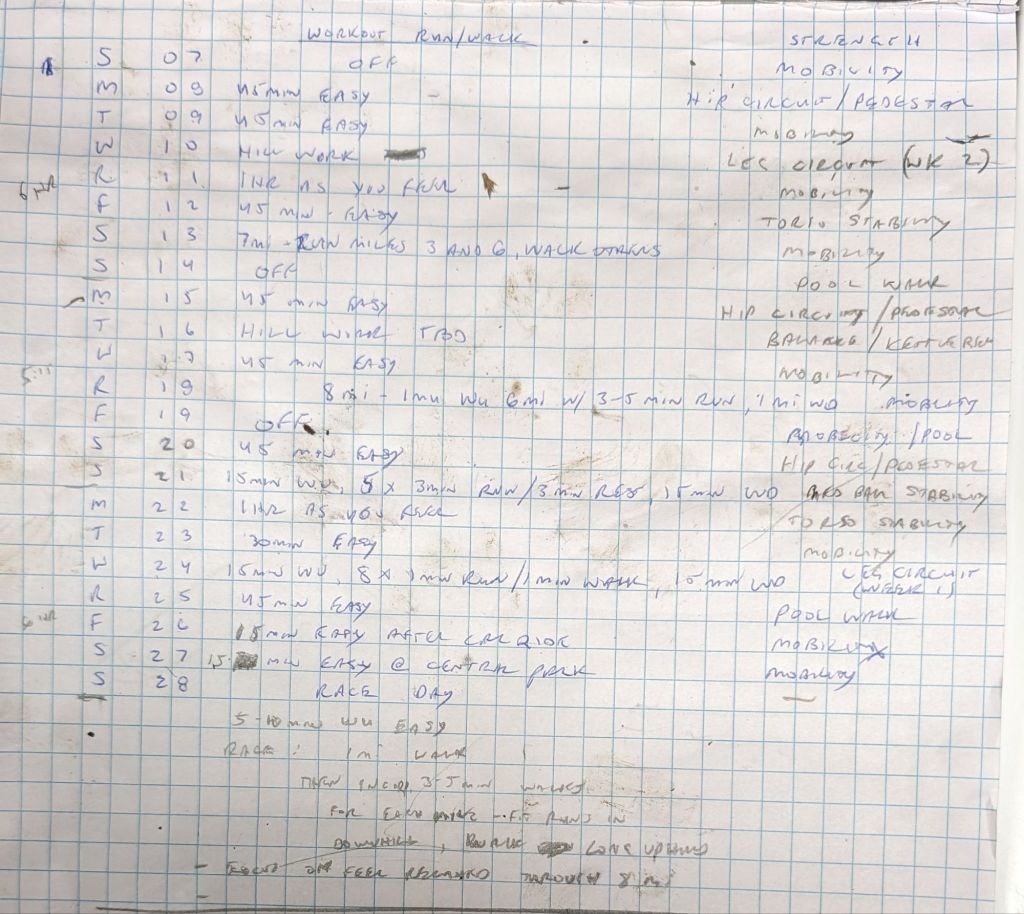 WORKOUT RUN/WALK STRENGTH
S 07 OFF MOBILITY
M 08 45 MIN EASY HIP CIRCUIT/PEDESTAL
T 09 45 MIN EASY MOBILITY
W 10 HILL WORK LEG CIRCUIT (WK 2)
6 HR R 11 1HR AS YOU FEEL MOBILITY
F 12 45 MIN - EASY TORSO STABILITY
S 13 7mi - RUN MILES 3 AND 6, WALK OTHERS MOBILITY
S 14 OFF POOL WALK
M 15 45 MIN EASY HIP CIRCUIT/PEDESTAL
T 16 HILL WORK TBD BALANCE/KETTLEBELL
W 17 45 MIN EASY MOBILITY
R 18 8 mi - 1 mi WU 6 mi W/ 3-5 MIN RUN, 1 mi WD MOBILITY
F 19 OFF MOBILITY/POOL
S 20 45 MIN EASY HIP CIRC/PEDESTAL
S 21 15 MIN WU, 5 X 3 MIN RUN/3 MIN REST, 15 MIN WD BALL STABILITY
M 22 1 HR AS YOU FEEL TORSO STABILITY
T 23 30 MIN EASY MOBILITY
W 24 15 MIN WU, 8 X 1 MIN RUN/1 MIN WALK, 15 MIN WD LEG CIRCUIT
(WEEK 1)
R 25 45 MIN EASY POOL WALK
F 26 15 MIN EASY AFTER MOBILITY
S 27 15 MIN EASY @ CENTRAL PARK MOBILITY
S 28 RACE DAY —
5-10 MIN WU EASY
RACE: 1 mi WALK
THEN 3-5 MIN WALKS
FOR EACH - FIT RUNS IN
DOWNHILL, LONG UPHILLS
- FOCUS ON FEEL THROUGH 8 mi